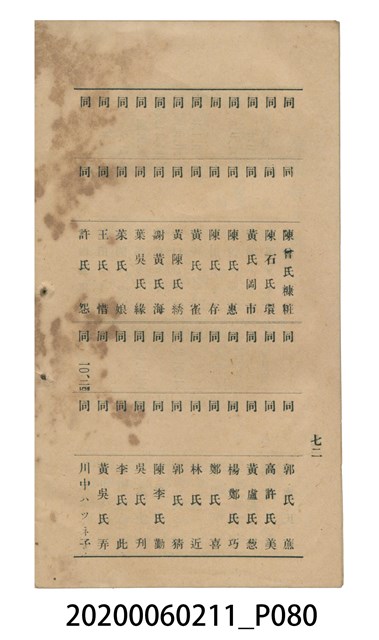 七二
同 同 陳曾氏糠粧 同 同 郭氏
同 同 陳石氏環 同 同 高許氏美
同 同 黃氏岡市 同 同 黃盧氏葱
同 同 陳氏惠 同 同 楊鄭氏巧
同 同 陳氏存 同 同 鄭氏喜
同 同 黃氏雀 同 同 林氏近
同 同 黃陳氏綉 同 同 郭氏猜
同 同 謝黃氏海 同 同 陳李氏勤
同 同 葉吳氏緣 同 同 吳氏刋
同 同 氏娘 同 同 李氏此
同 同 王氏惜 同 同 黃吳氏弄
同 同 許氏怨 同 一〇、二四 同 川中ハツネ子
20200060211_P080